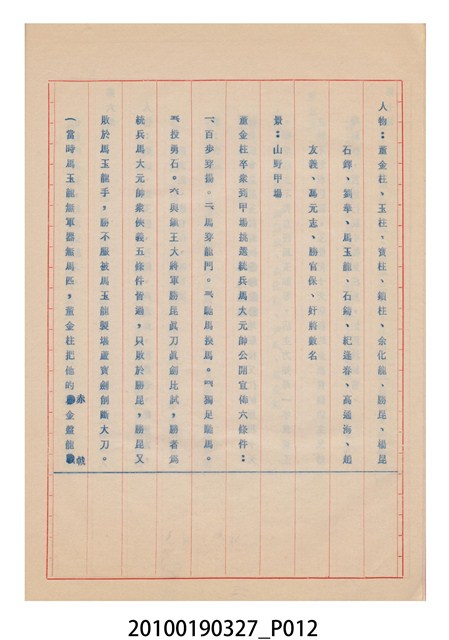 人物：董金柱、玉柱、寶柱、鎖柱、余化龍、勝昆、楊昆
石鐸、劉華、馬玉龍、石鑄、紀逢春、高通海、趙
友義、馬元志、勝官保、奸將數名
景：山野甲場
董金柱率衆到甲場挑選統兵馬大元帥公開宣佈六條件：
一、百步穿楊。二、馬穿龍門。三、馳馬換馬。四、獨足馳馬。
五、投勇石。六、與鎮王大將軍勝昆眞刀眞劍比試，勝者爲
統兵馬大元帥衆俠義五條件皆過，只敗於勝昆，勝昆又
敗於馬玉龍手，勝不服被馬玉龍製湛盧寶劍削斷大刀。
（當時馬玉龍無軍器無馬匹，董金柱把他的赤金盤龍戟
20100190327_P012